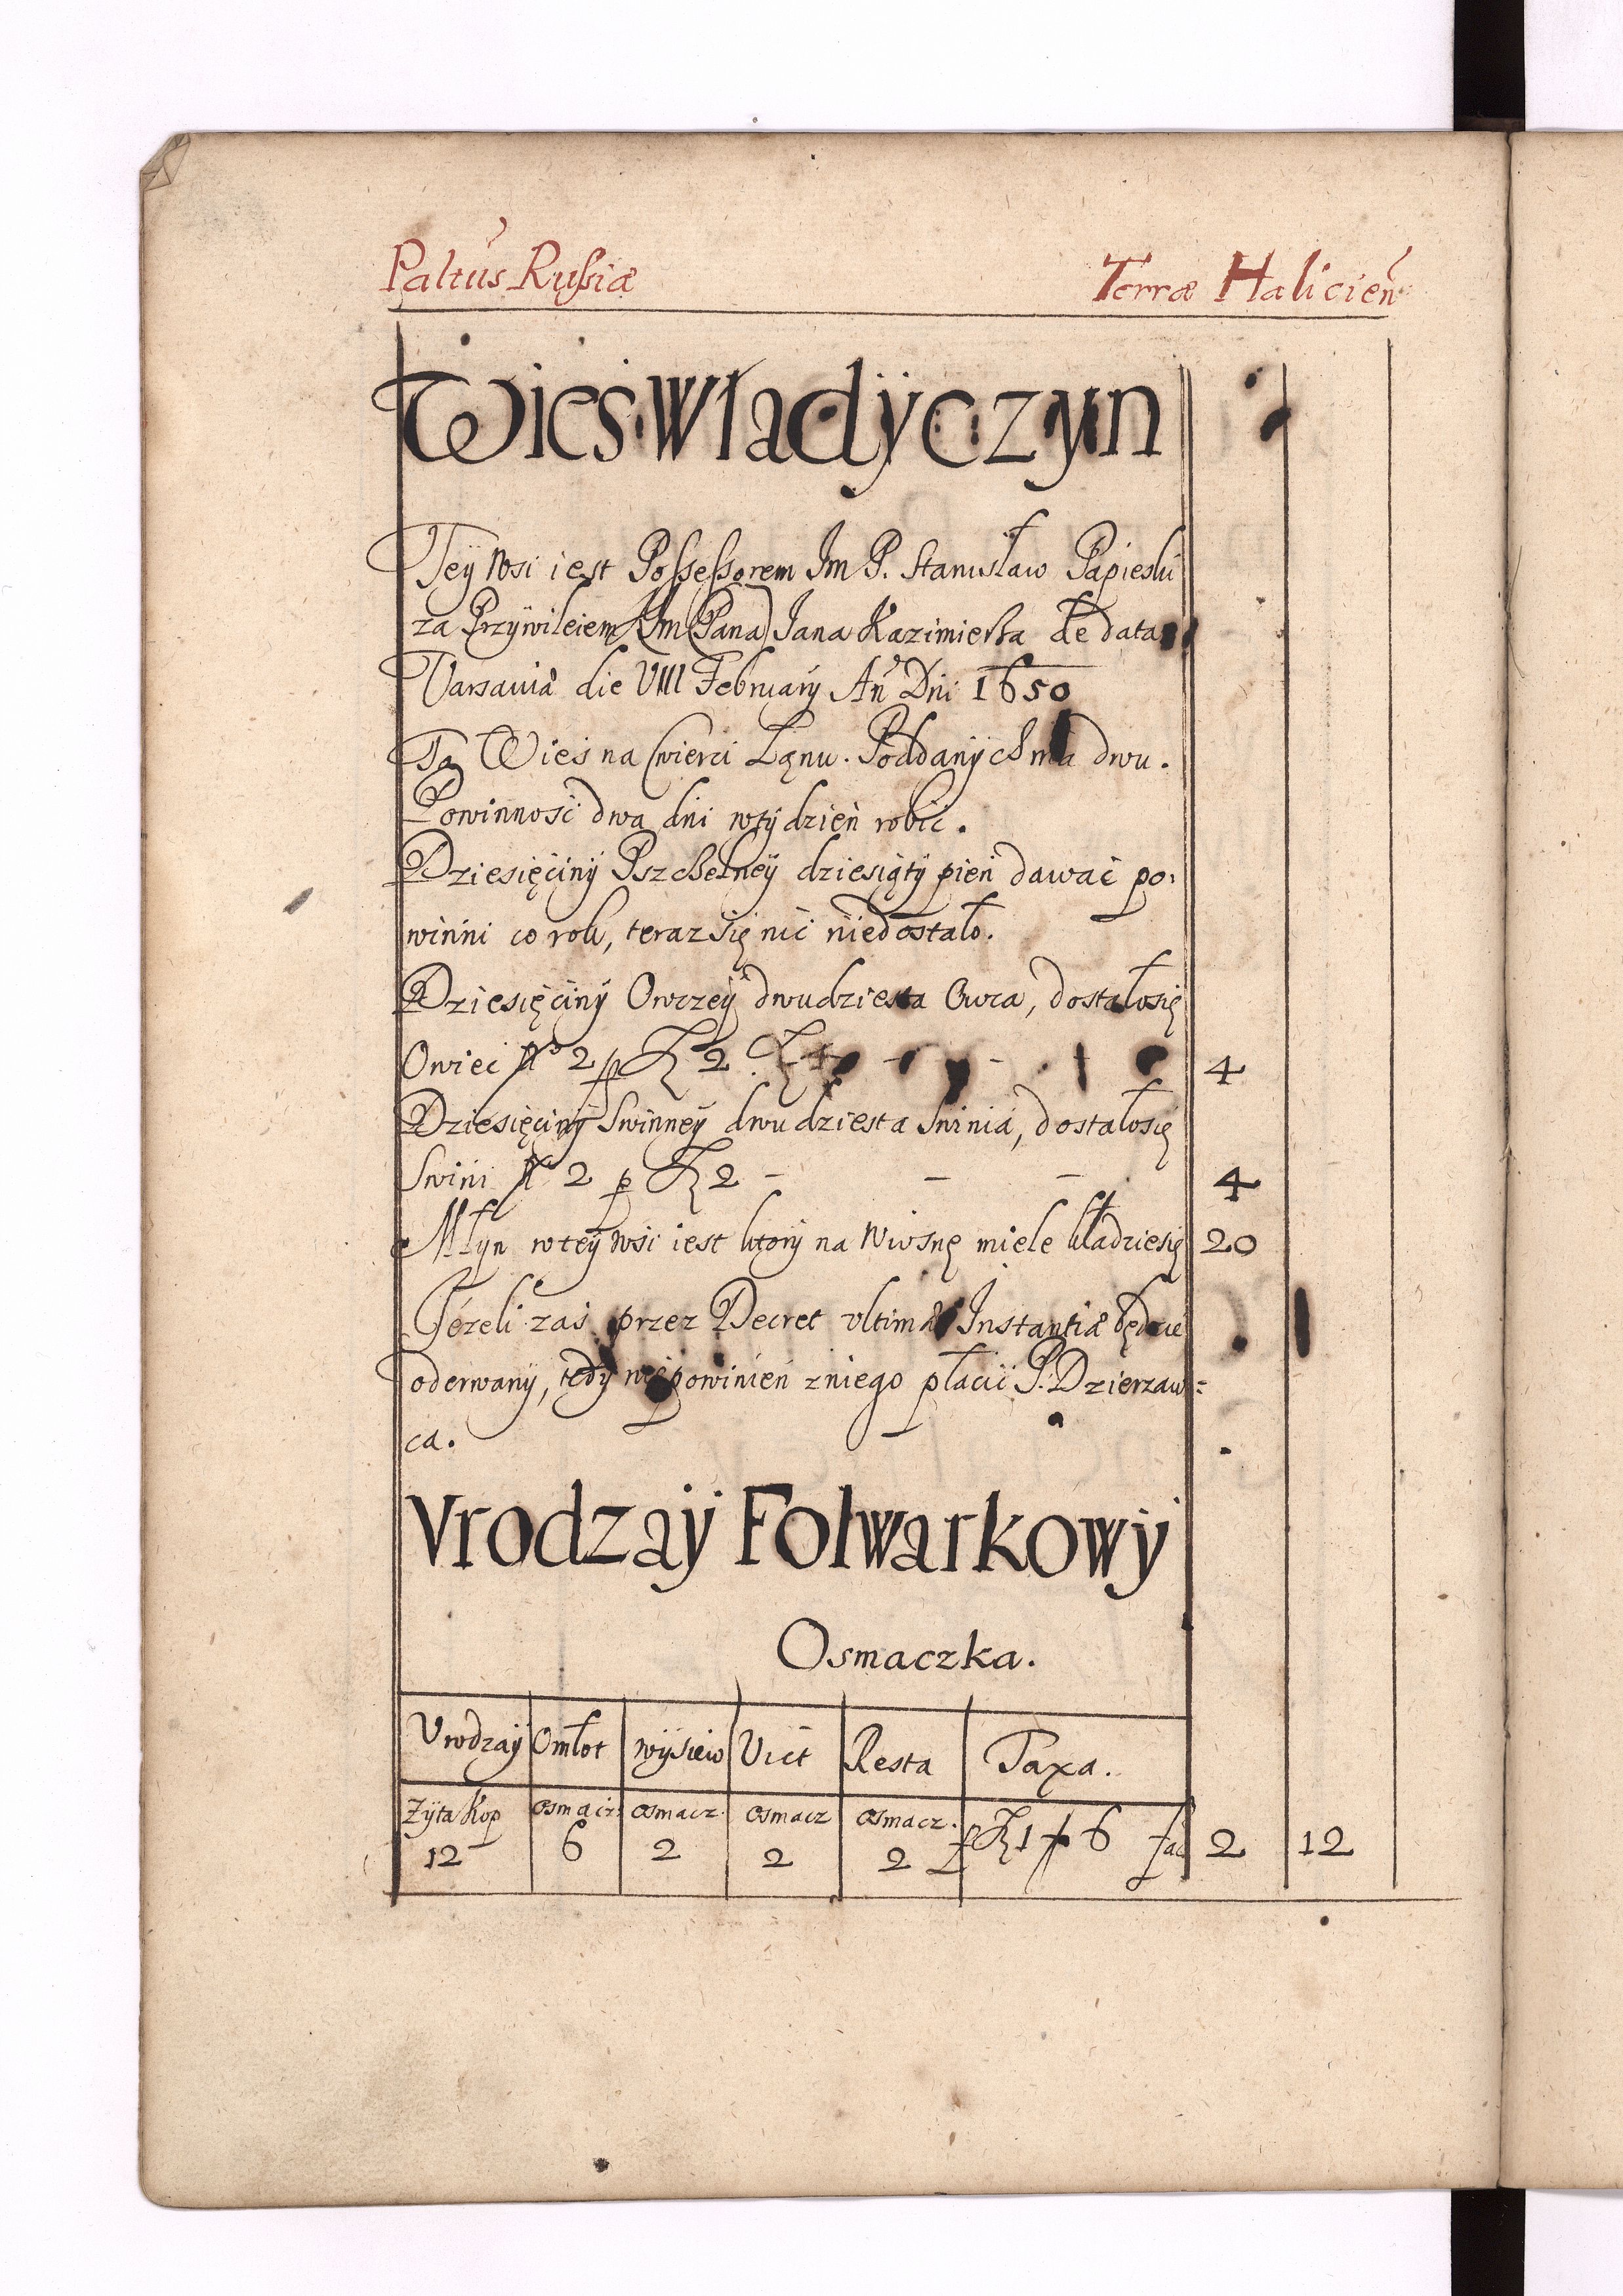 Paltus Russiæ Terræ Halicien
Wieś Władÿczyn
Teÿ Wsi iest Possessorem Jm P. Stanisław Papieski
za Przÿwileiem Jana Kazimierza de data
Varsaviæ die VIII Februarÿ Añ Dni 1650
Ta Wieś na ćwierci Łąnu. Poddanÿch ma dwu.
Powinność dwa dni wtÿdzień robić.
Dziesięcinÿ Pszchelneÿ dziesiątÿ pień dawać po:
winni co rok, teraz się nic niedostało.
Dziesięcinÿ Owczeÿ dwudziesta Owca, dostałosię
Owiec No 2 p 2 4
Dziesięcinÿ Swinneÿ dwudziesta Swinia, dostałosię
Swini No 2 p 2 - - - 4
Młÿn wteÿ Wsi iest ktorÿ na Wiosnę miele kładziesię 20
Jeżeli zaś przez Decret vltimæ Instantiæ będzie
oderwanÿ, tedÿ powinien zniego płacic P. Dzierzaw:
ca.
Vrodzaÿ Folwarkowÿ
Osmaczka.
Vrodzaÿ Omłot wÿsiew Vict Resta Taxa.
Zÿta Kop osmacz osmacz. osmacz osmacz.
12 6 2 2 2 1 6 fac 2 12